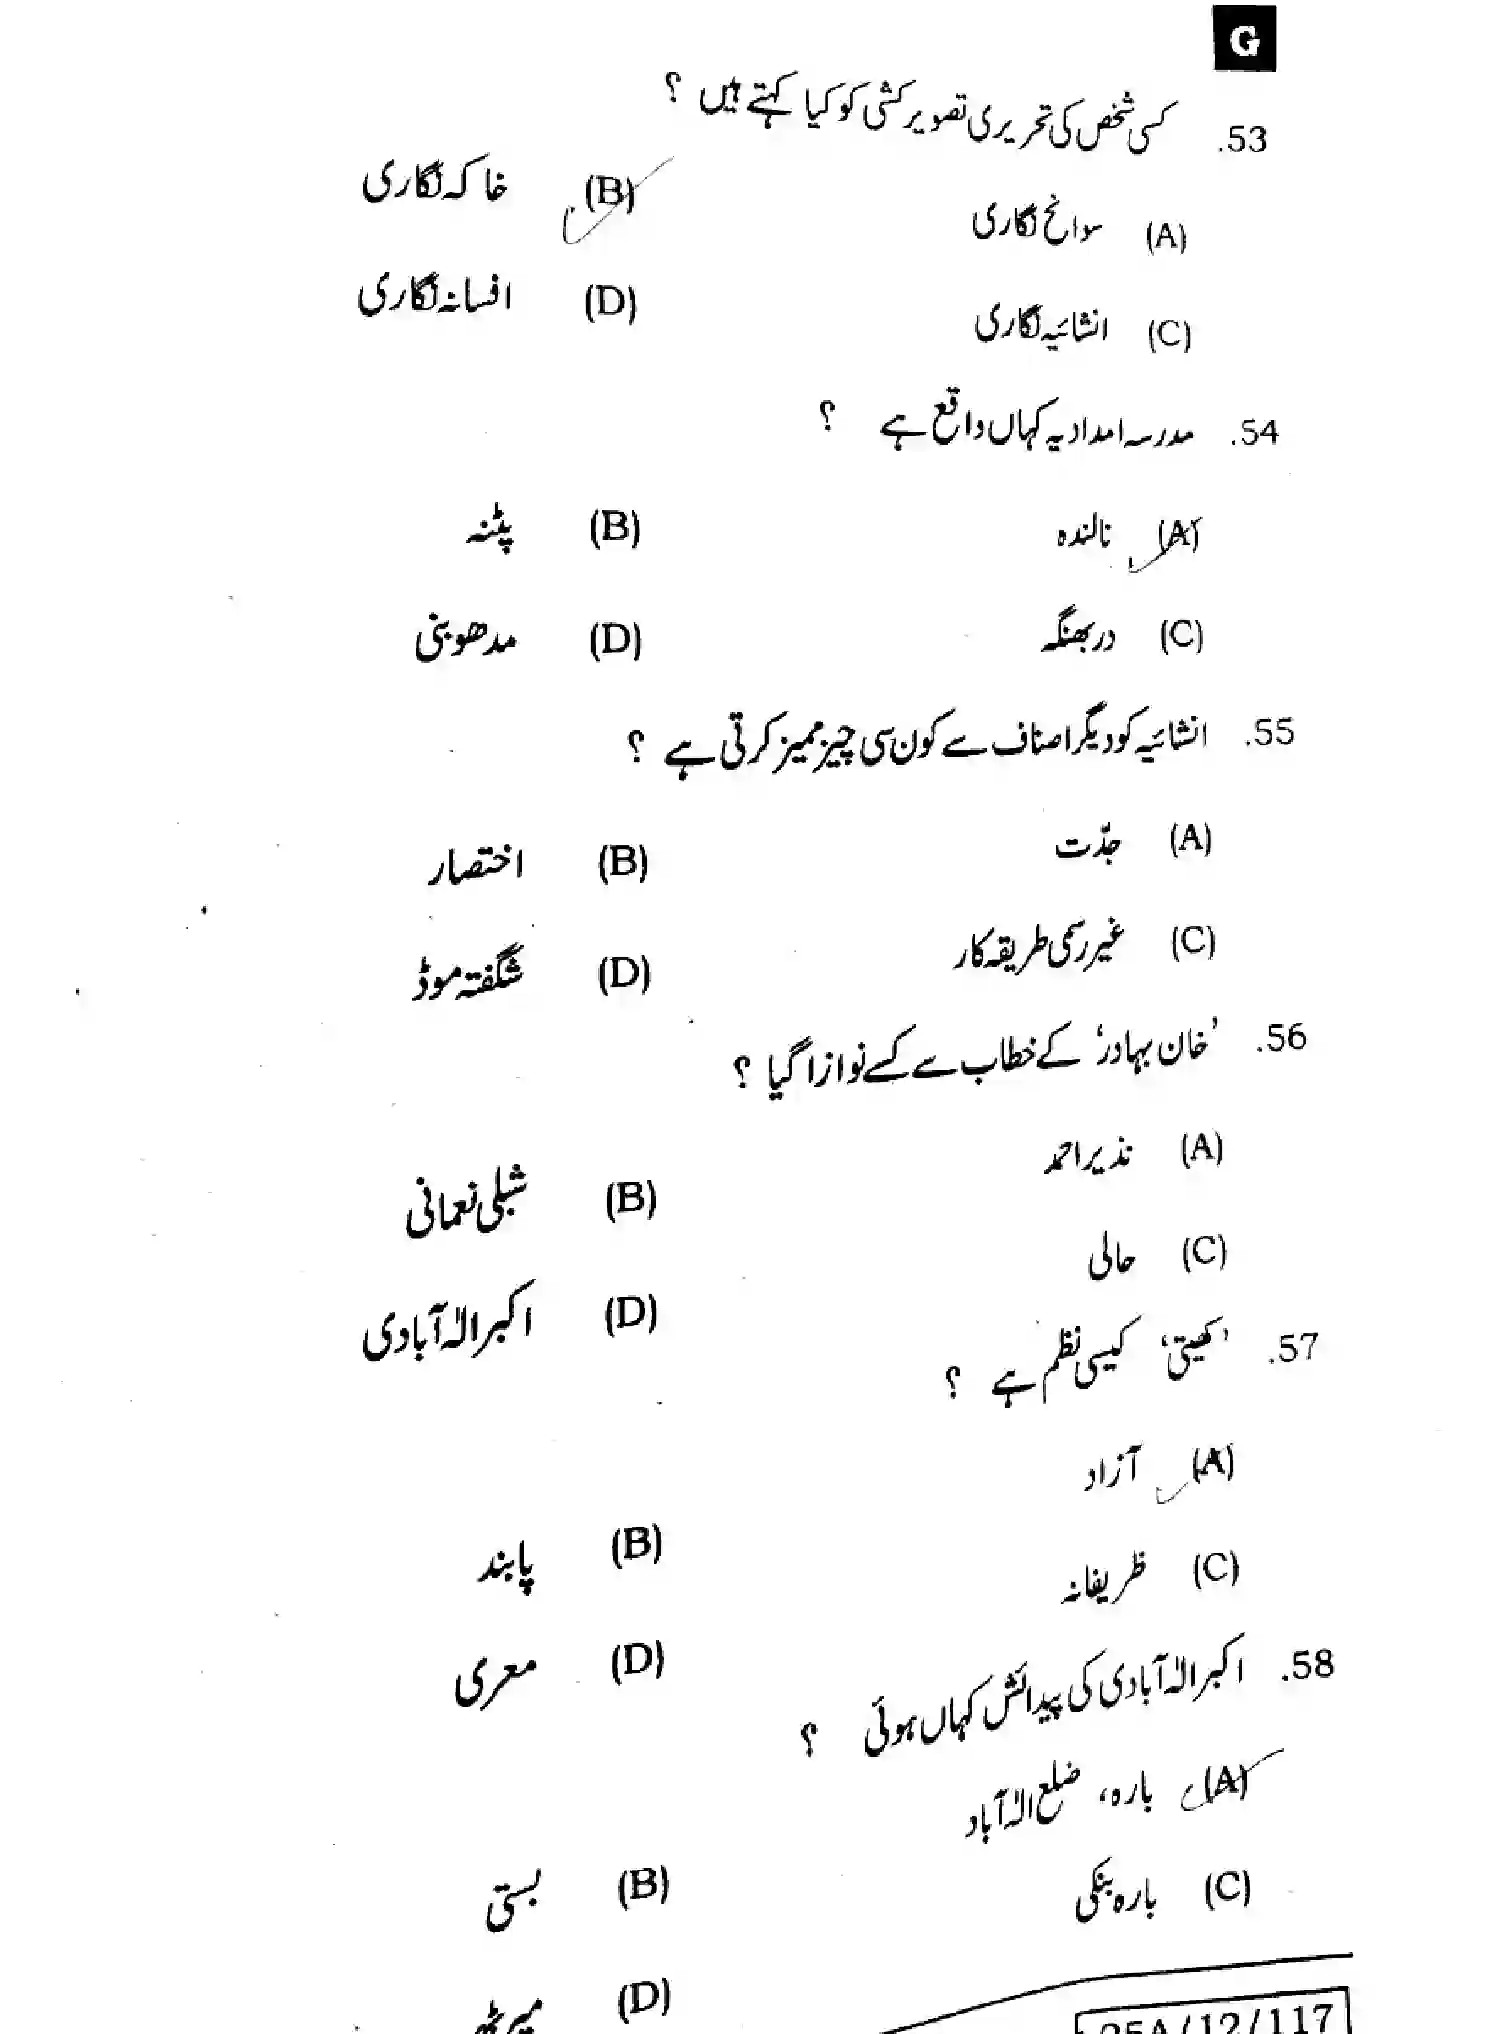 G
53. کسی شخص کی تحریری تصویر کشی کو کیا کہتے ہیں ؟
(A) سوانح نگاری (B) خاکہ نگاری
(C) انشائیہ نگاری (D) افسانہ نگاری
54. مدرسہ امدادیہ کہاں واقع ہے ؟
(A) نالندہ (B) پٹنہ
(C) دربھنگہ (D) مدھوبنی
55. انشائیہ کو دیگر اصناف سے کون سی چیز ممیز کرتی ہے ؟
(A) جدّت (B) اختصار
(C) غیر رسمی طریقہ کار (D) شگفتہ موڈ
56. ’خان بہادر‘ کے خطاب سے کسے نوازا گیا ؟
(A) نذیر احمد (B) شبلی نعمانی
(C) حالی (D) اکبر الہٰ آبادی
57. ’کھیتی‘ کیسی نظم ہے ؟
(A) آزاد (B) پابند
(C) ظریفانہ (D) معری
58. اکبر الہٰ آبادی کی پیدائش کہاں ہوئی ؟
(A) بارہ، ضلع الہٰ آباد (B) بستی
(C) بارہ بنکی (D) میرٹھ
25A/12/117